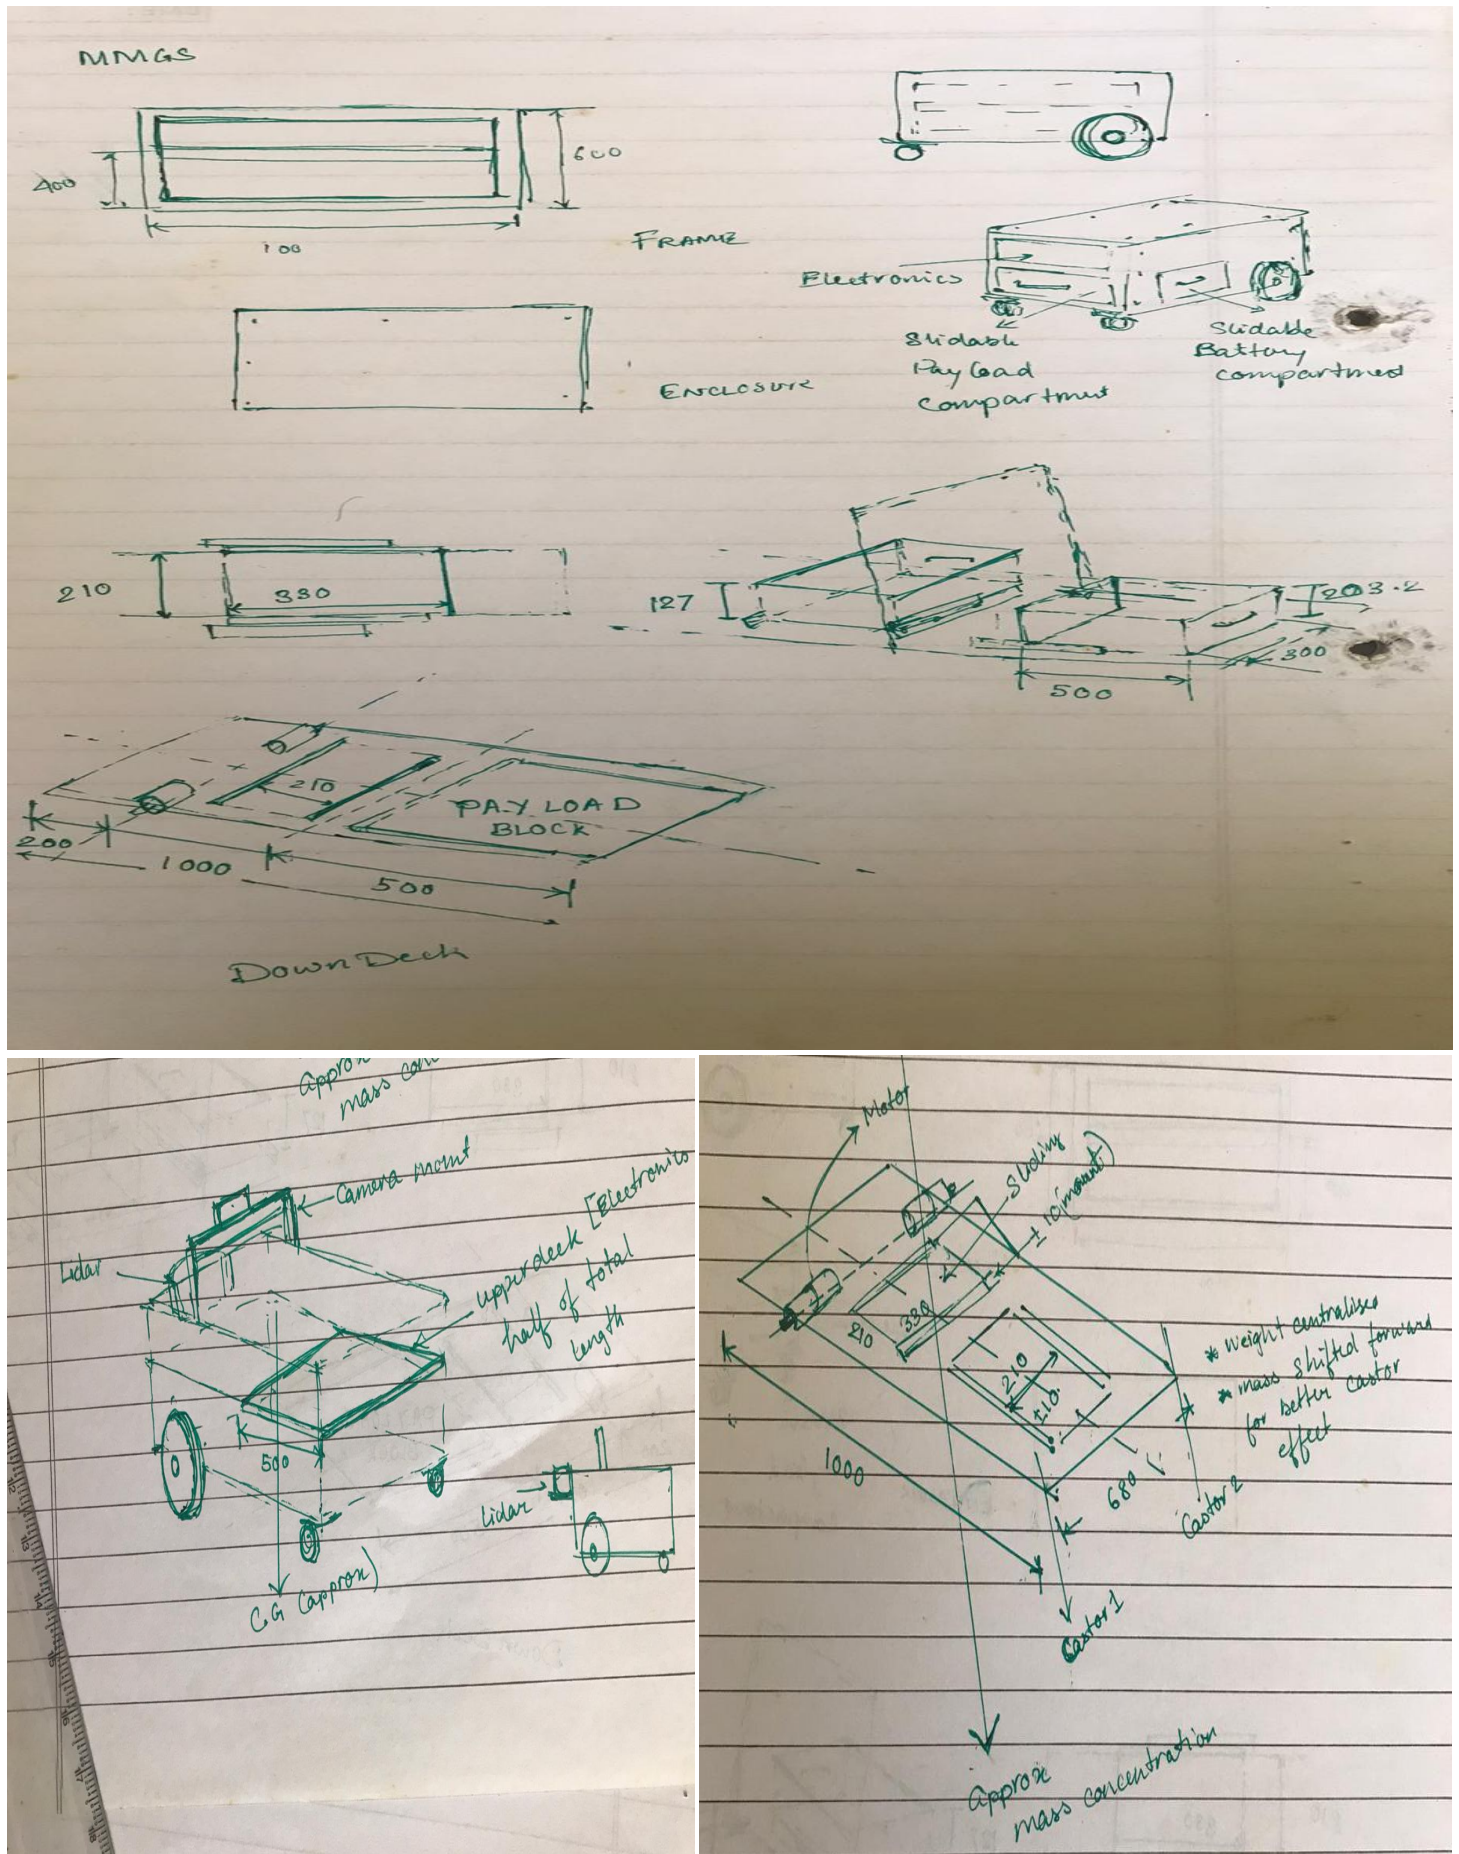 MMGS
400
600
100
FRAME
Electronics
Slidable
Pay load
compartment
Slidable
Battery
compartment
ENCLOSURE
210
330
127
203.2
300
500
210
PAY LOAD
BLOCK
200
1000
500
Down Deck
Approx
mass conc
Camera mount
Lidar
upper deck [Electronics
half of total
length
500
Lidar
C.G (approx)
Motor
Sliding
± 10(mount)
210
330
210
±10
1000
680
* weight centralised
* mass shifted forward
for better castor
effect
Castor 2
Castor 1
Approx
mass concentration